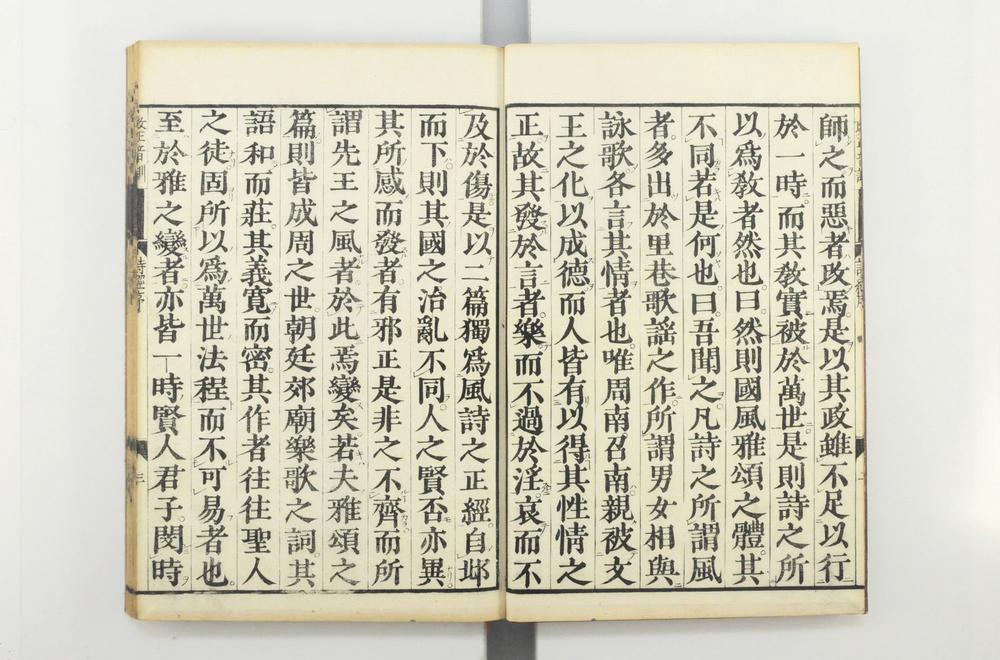 師之而惡者改焉是以其政雖不足以行
於一時而其敎實被於萬世是則詩之所
以爲敎者然也曰然則國風雅頌之體其
不同若是何也曰吾聞之凡詩之所謂風
者多出於里巷歌謠之作所謂男女相與
詠歌各言其情者也唯周南召南親被文
王之化以成德而人皆有以得其性情之
正故其發於言者樂而不過於淫哀而不
及於傷是以二篇獨爲風詩之正經自邶
而下則其國之治亂不同人之賢否亦異
其所感而發者有邪正是非之不齊而所
謂先王之風者於此焉變矣若夫雅頌之
篇則皆成周之世朝廷郊廟樂歌之詞其
語和而莊其義寬而密其作者往往聖人
之徒固所以爲萬世法程而不可易者也
至於雅之變者亦皆一時賢人君子閔時
改正音訓
詩經序
三